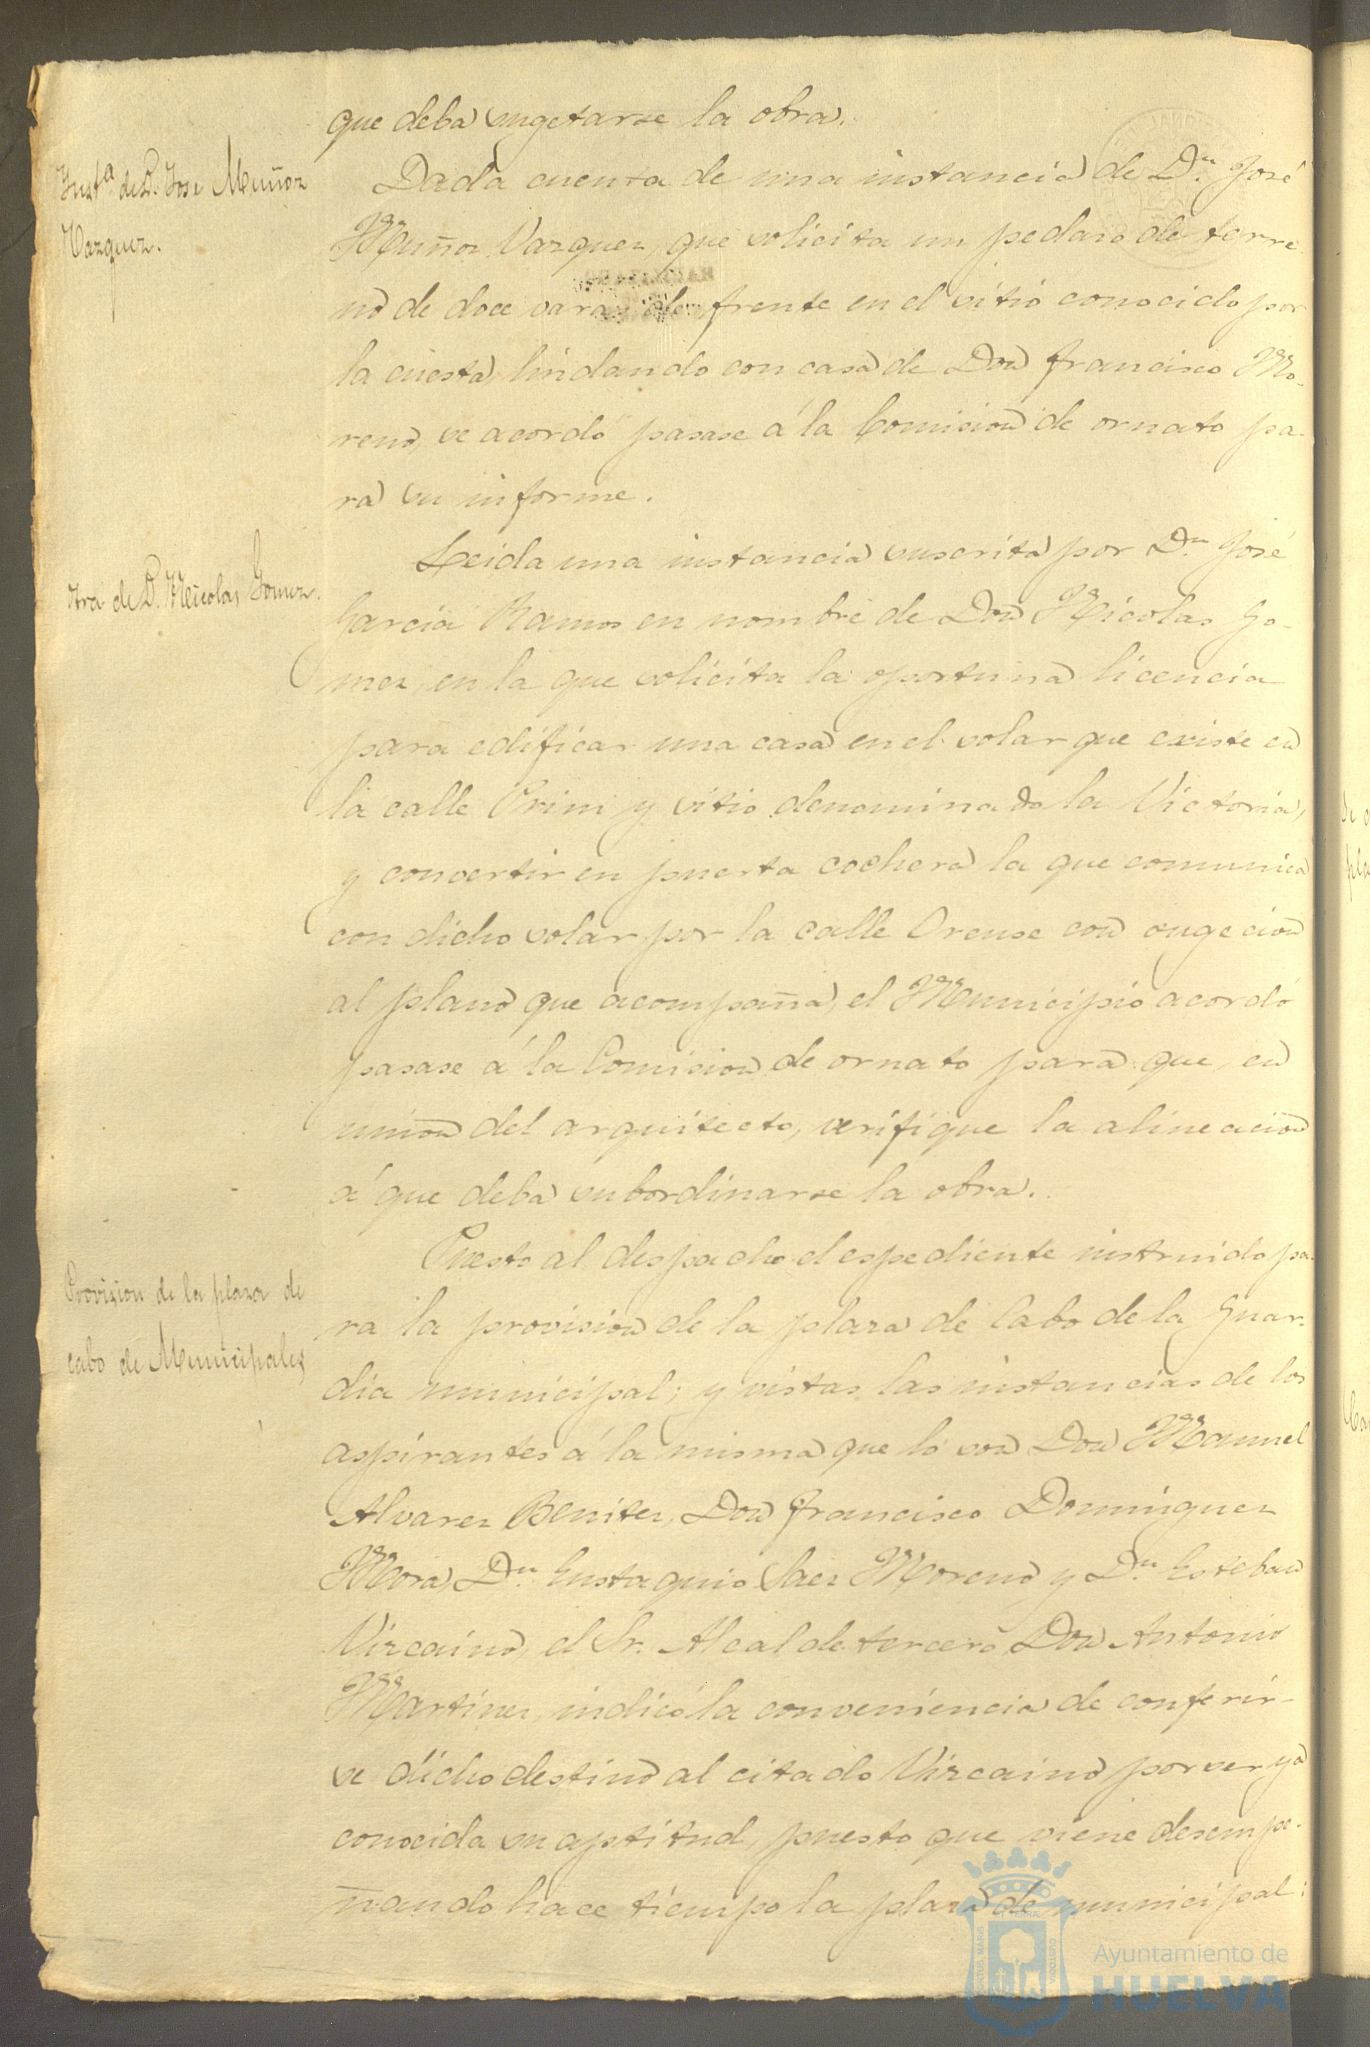 que deba sugetarse la obra.
Inst.ª de D. Jose Muñoz
Vazquez.
Dada cuenta de una instancia de D.n José
Muñoz Vazquez, que solicita un pedazo de terre
no de doce varas de frente en el sitio conocido por
la cuesta, lindando con casa de Don Francisco Mo-
reno, se acordó pasase á la Comision de ornato pa-
ra su informe.
Otra de D. Nicolas Gomez.
Leida una instancia suscrita por D.n José
García Ramos en nombre de Don Nicolas Go-
mez, en la que solicita la oportuna licencia
para edificar una casa en el solar que existe en
la calle Prim y sitio denominado la Victoria,
y convertir en puerta cochera la que comunica
con dicho solar por la calle Orense con sugecion
al plano que acompaña, el Municipio acordó
pasase á la Comision de ornato para que, en
union del arquitecto, verifique la alineacion
á que deba subordinarse la obra.
Provision de la plaza de
cabo de Municipales
Puesto al despacho el espediente instruido pa-
ra la provision de la plaza de Cabo de la Guar-
dia municipal; y vistas las instancias de los
aspirantes á la misma que lo son Don Manuel
Alvarez Benitez, Don Francisco Dominguez
Mora, D.n Eustaquio Saez Moreno y D.n Esteban
Vizcaino, el Sr. Alcalde tercero Don Antonio
Martinez, indicó la conveniencia de conferir-
se dicho destino al citado Vizcaino por ser ya
conocida su aptitud, puesto que viene desempe-
ñando hace tiempo la plaza de municipal:
Ayuntamiento de
HUELVA